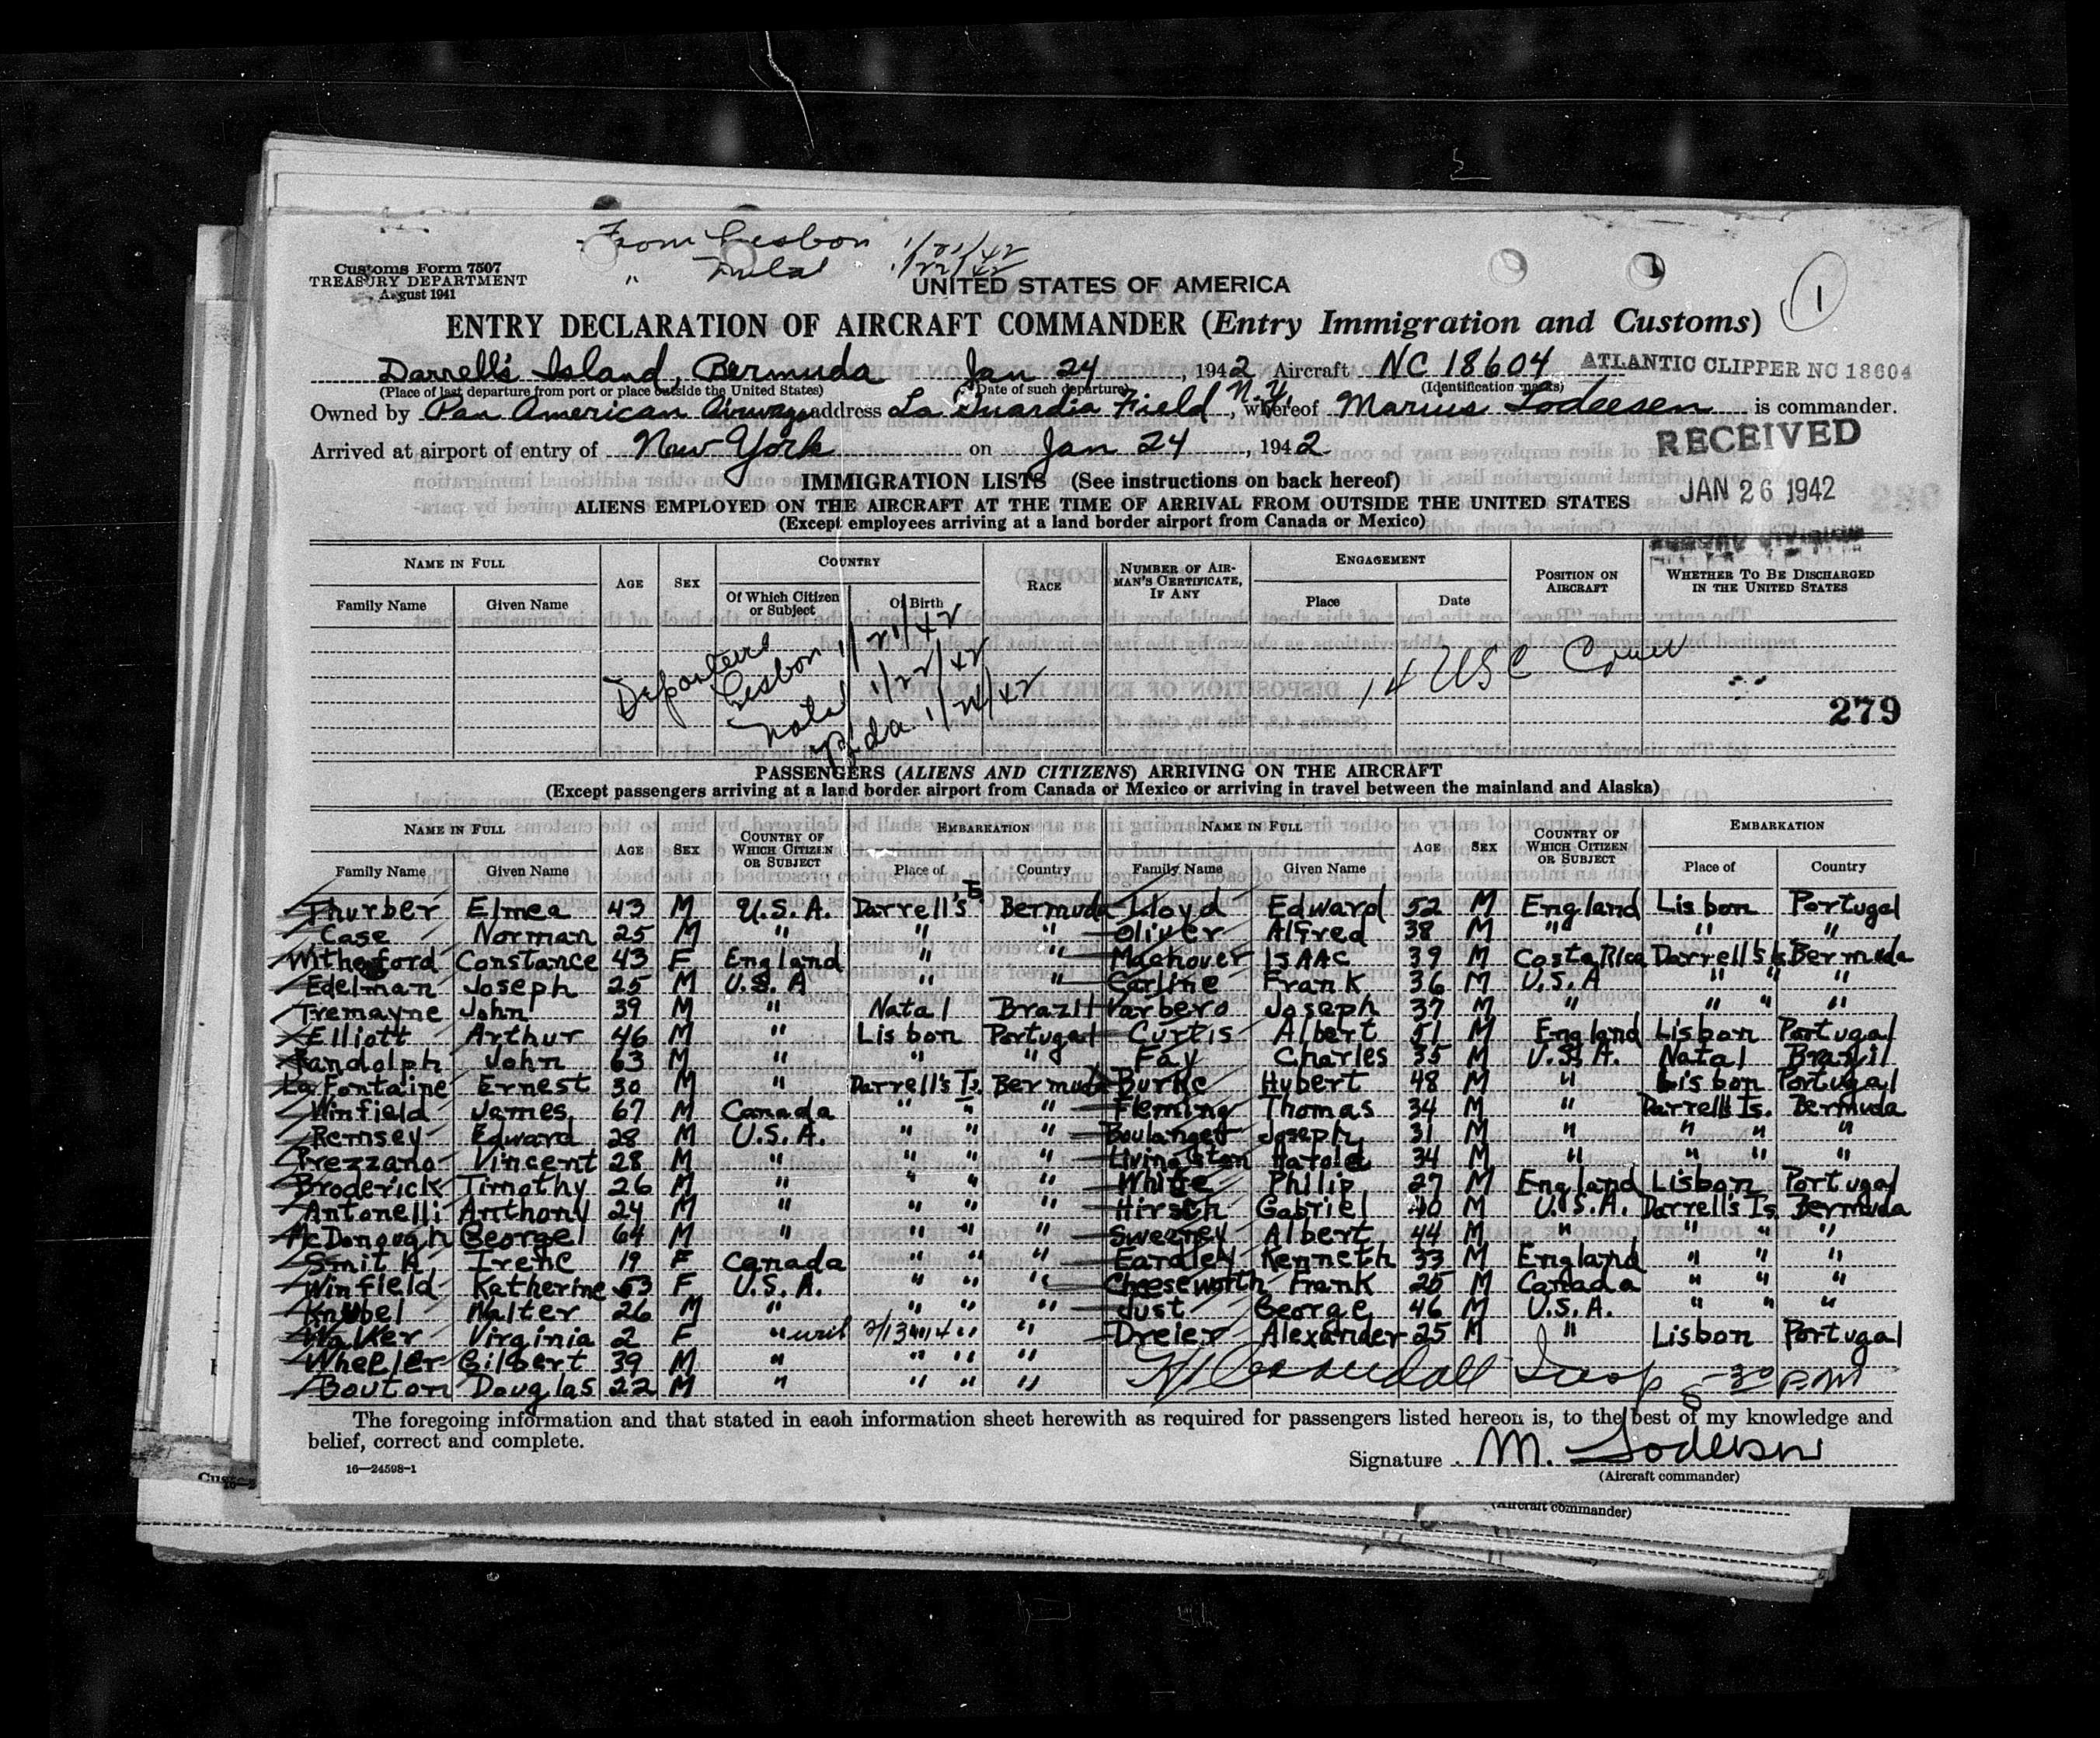 From Lisbon 1/21/42
" Natal 1/22/42
Customs Form 7507
TREASURY DEPARTMENT
August 1941
UNITED STATES OF AMERICA
1
ENTRY DECLARATION OF AIRCRAFT COMMANDER (Entry Immigration and Customs)
Darrell's Island, Bermuda Jan 24, 1942 Aircraft NC 18604 ATLANTIC CLIPPER NC 18604
(Place of last departure from port or place outside the United States) (Date of such departure) (Identification marks)
Owned by Pan American Airways address La Guardia Field, N.Y. whereof Marius Lodeesen is commander.
Arrived at airport of entry of New York on Jan 24, 1942.
RECEIVED
JAN 26 1942
IMMIGRATION LISTS (See instructions on back hereof)
ALIENS EMPLOYED ON THE AIRCRAFT AT THE TIME OF ARRIVAL FROM OUTSIDE THE UNITED STATES
(Except employees arriving at a land border airport from Canada or Mexico)
NAME IN FULL AGE SEX COUNTRY RACE NUMBER OF AIRMAN'S CERTIFICATE, IF ANY ENGAGEMENT POSITION ON AIRCRAFT WHETHER TO BE DISCHARGED IN THE UNITED STATES
Family Name Given Name Of Which Citizen or Subject Of Birth Place Date
Departed
Lisbon 1/21/42
Natal 1/22/42
B'da 1/24/42
14 USC Crew
279
PASSENGERS (ALIENS AND CITIZENS) ARRIVING ON THE AIRCRAFT
(Except passengers arriving at a land border airport from Canada or Mexico or arriving in travel between the mainland and Alaska)
NAME IN FULL AGE SEX COUNTRY OF WHICH CITIZEN OR SUBJECT EMBARKATION NAME IN FULL AGE SEX COUNTRY OF WHICH CITIZEN OR SUBJECT EMBARKATION
Family Name Given Name Place of Country Family Name Given Name Place of Country
Thurber Elmea 43 M U.S.A. Darrell's Is Bermuda Lloyd Edward 52 M England Lisbon Portugal
Case Norman 25 M " " " Oliver Alfred 38 M " " "
Witherford Constance 43 F England " " Machover Isaac 39 M Costa Rica Darrell's Is Bermuda
Edelman Joseph 25 M U.S.A " " Carline Frank 36 M U.S.A " " "
Tremayne John 39 M " Natal Brazil Varbero Joseph 37 M " " " "
Elliott Arthur 46 M " Lisbon Portugal Curtis Albert 51 M England Lisbon Portugal
Randolph John 63 M " " " Fay Charles 35 M U.S.A. Natal Brazil
La Fontaine Ernest 30 M " Darrell's Is. Bermuda Burke Hubert 48 M " Lisbon Portugal
Winfield James 67 M Canada " " " Fleming Thomas 34 M " Darrell's Is. Bermuda
Remsey Edward 28 M U.S.A. " " " Boulanger Joseph 31 M " " " "
Prezzano Vincent 28 M " " " " Livingston Harold 34 M " " " "
Broderick Timothy 26 M " " " " White Philip 27 M England Lisbon Portugal
Antonelli Anthony 24 M " " " " Hirsch Gabriel 40 M U.S.A. Darrell's Is. Bermuda
McDonough George 64 M " " " " Sweeney Albert 44 M " " " "
Smith Irene 19 F Canada " " " Eardley Kenneth 33 M England " " "
Winfield Katherine 53 F U.S.A. " " " Cheeseworth Frank 25 M Canada " " "
Knubel Walter 26 M " " " " Just George 46 M U.S.A. " " "
Walker Virginia 2 F " " " Dreier Alexander 25 M " Lisbon Portugal
Wheeler Gilbert 39 M " " " "
Bouton Douglas 22 M " " " " Insp 5-30 PM
The foregoing information and that stated in each information sheet herewith as required for passengers listed hereon is, to the best of my knowledge and
belief, correct and complete.
Signature M. Lodeesen
16—24598-1
(Aircraft commander)
(Aircraft commander)